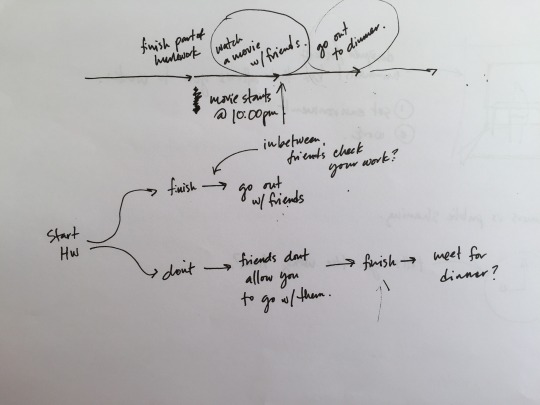 finish part of
homework
watch
a movie
w/ friends.
go out
to dinner.
movie starts
@ 10:00pm
inbetween,
friends check
your work?
finish
go out
w/ friends
Start
HW
don't
friends dont
allow you
to go w/ them.
finish
meet for
dinner?